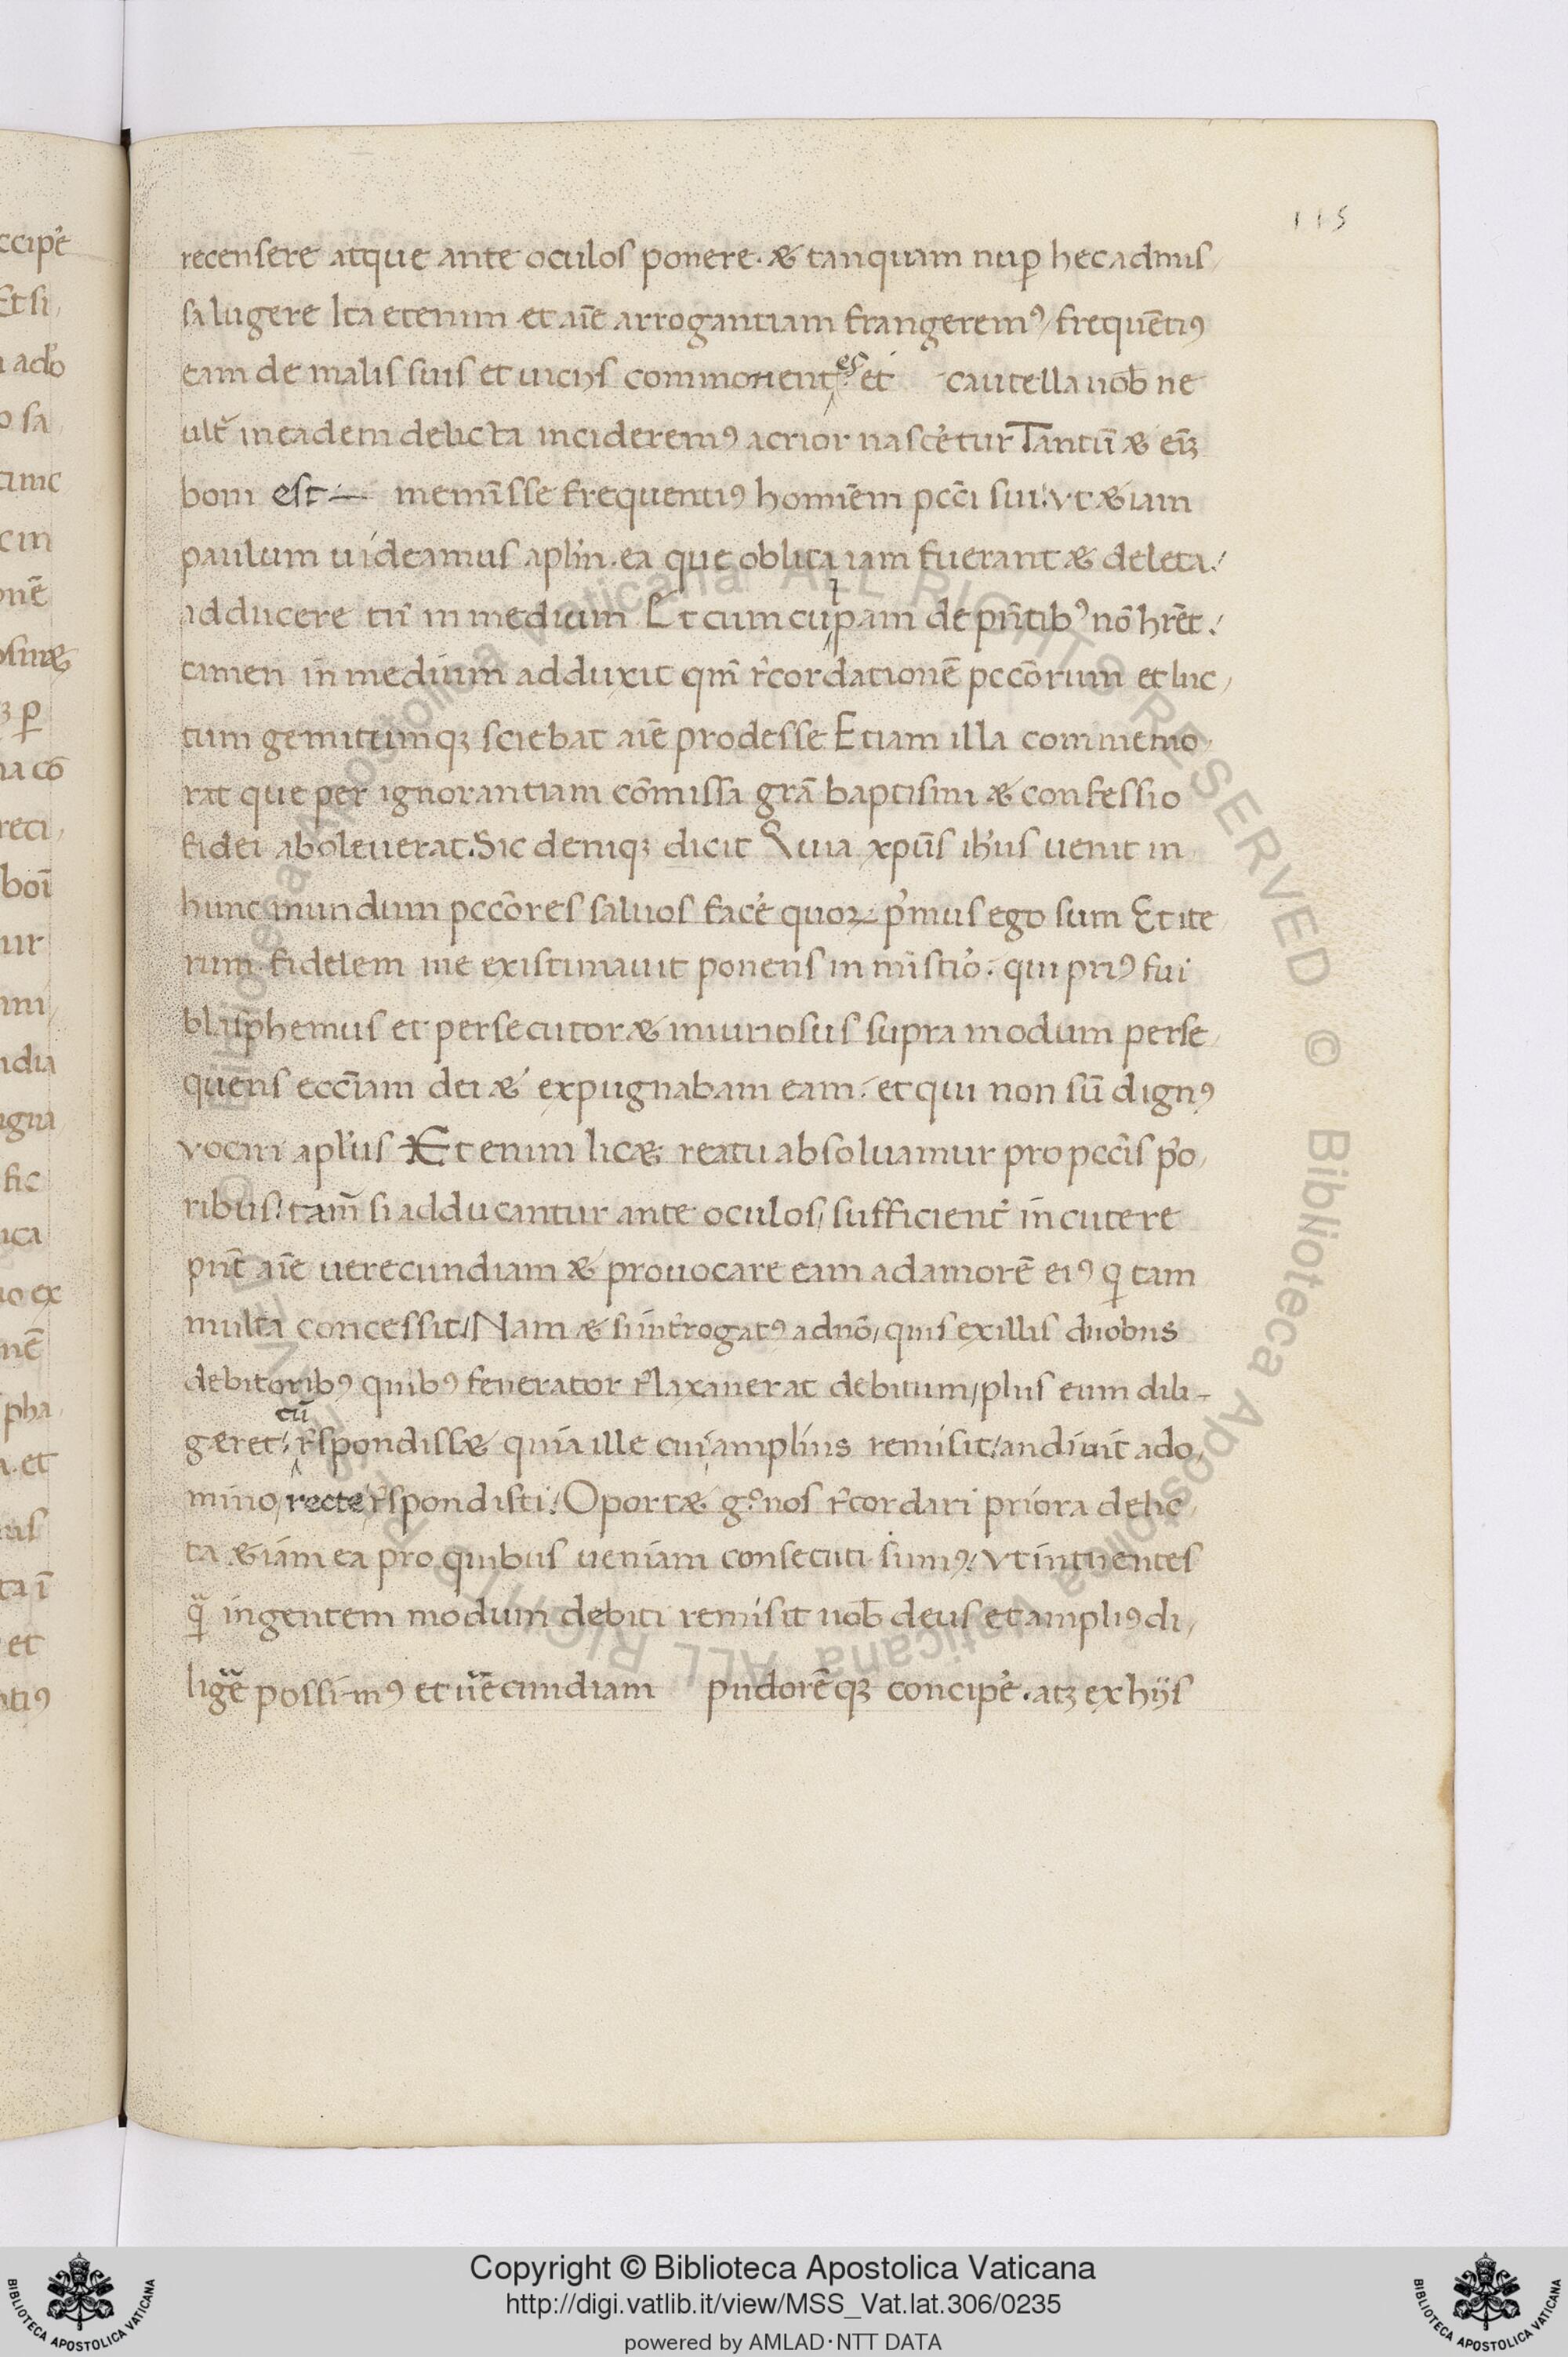 115
recensere atque ante oculos ponere. & tanquam nuꝑ hec admis/
sa lugere Ita etenim et aīe arrogantiam frangeremꝰ/ frequētiꝰ
eam de malis suis et uicijs commonentes et cautella nob̄ ne
ult̄ in eadem delicta incideremꝰ acrior nasceretur Tantū & eīȝ
boni est — meminīsse frequentiꝰ hominēm pcc̄i sui: vt &iam
paulum uideamus apl̄m. ea que oblita iam fuerant & deleta:/
adducere tn̄ in medium Et cum culpam de pn̄tibꝰ nō hr̄et:/
tamen in medium adduxit qm̄ r̄cordationē pcc̄orum et luc/
tum gemitumqȝ sciebat aīe prodesse Etiam illa commemo/
rat que per ignorantiam cōmissa grā baptismi & confessio
fidei aboleuerat. Sic deniqȝ dicit Quia xp̄us ih̄us uenit in
hunc mundum pcc̄ores saluos face̓ quoꝝ p̓mus ego sum Et ite
rum fidelem me existimauit ponens in mīstio̓: qui priꝰ fui
blasphemus et persecutor & iniuriosus supra modum perse/
quens ecc̄iam dei & expugnabam eam: et qui non sū dignꝰ
vocari apl̄us Et enim lic& reatu absoluamur pro pcc̄is p̓o/
ribus: tam̄ si adducantur ante oculos/ sufficient̓ incutere
pn̄t aīe uerecundiam & prouocare eam ad amorē eiꝰ q̓ tam
multa concessit/ Nam & si int̓rogatꝰ a dn̄o/ quis ex illis duobus
debitoribꝰ quibꝰ fenerator r̄laxauerat debitum/ plus eum dili-
geret: cū r̄spondiss& quia ille cui amplius remisit:/ audiuit a do/
mino/ recte r̄spondisti:/ Oport& g̊ nos r̄cordari priora delic
ta &iam ea pro quibus ueniam consecuti sumꝰ:/ vt intuentes
qᷓ ingentem modum debiti remisit nob̄ deus et ampliꝰ di/
lige̓ possimꝰ et ue̓cundiam pudorēqȝ concipe̓. atȝ ex hijs
ccipe̓
Et si/
o sa
cin
onē
na cō
reci/
boī
ur
ndia
fic
ica
uo ex
nē
pha/
et
ta ī
et
Copyright © Biblioteca Apostolica Vaticana
http://digi.vatlib.it/view/MSS_Vat.lat.306/0235
powered by AMLAD·NTT DATA
BIBLIOTECA APOSTOLICA VATICANA
BIBLIOTECA APOSTOLICA VATICANA
© Biblioteca Apostolica Vaticana ALL RIGHTS RESERVED © Biblioteca Apostolica Vaticana ALL RIGHTS RESERVED